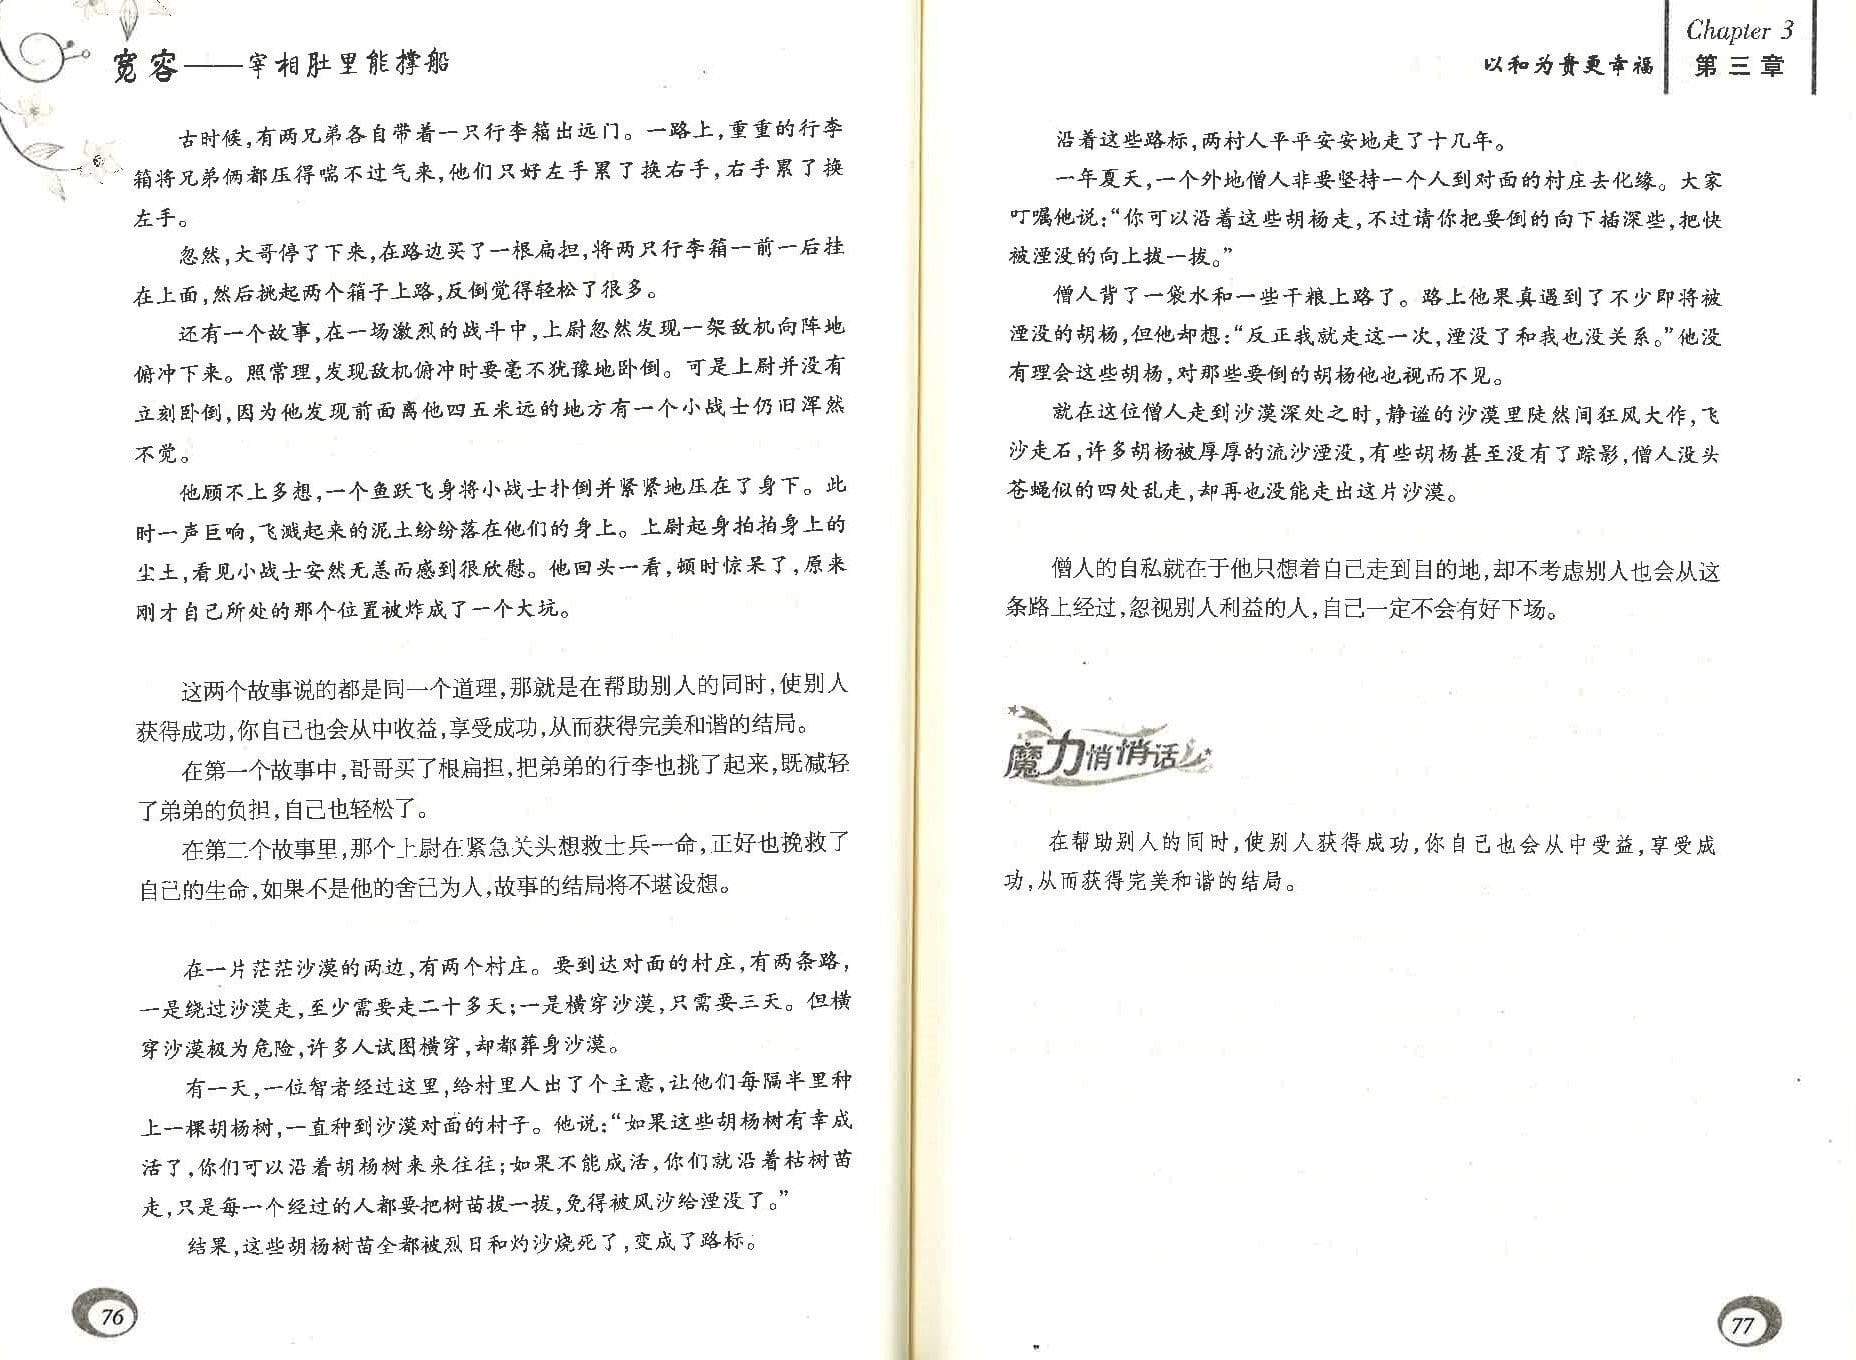 宽容——宰相肚里能撑船
古时候,有两兄弟各自带着一只行李箱出远门。一路上,重重的行李
箱将兄弟俩都压得喘不过气来,他们只好左手累了换右手,右手累了换
左手。
忽然,大哥停了下来,在路边买了一根扁担,将两只行李箱一前一后挂
在上面,然后挑起两个箱子上路,反倒觉得轻松了很多。
还有一个故事,在一场激烈的战斗中,上尉忽然发现一架敌机向阵地
俯冲下来。照常理,发现敌机俯冲时要毫不犹豫地卧倒。可是上尉并没有
立刻卧倒,因为他发现前面离他四五米远的地方有一个小战士仍旧浑然
不觉。
他顾不上多想,一个鱼跃飞身将小战士扑倒并紧紧地压在了身下。此
时一声巨响,飞溅起来的泥土纷纷落在他们的身上。上尉起身拍拍身上的
尘土,看见小战士安然无恙而感到很欣慰。他回头一看,顿时惊呆了,原来
刚才自己所处的那个位置被炸成了一个大坑。
这两个故事说的都是同一个道理,那就是在帮助别人的同时,使别人
获得成功,你自己也会从中收益,享受成功,从而获得完美和谐的结局。
在第一个故事中,哥哥买了根扁担,把弟弟的行李也挑了起来,既减轻
了弟弟的负担,自己也轻松了。
在第二个故事里,那个上尉在紧急关头想救士兵一命,正好也挽救了
自己的生命,如果不是他的舍己为人,故事的结局将不堪设想。
在一片茫茫沙漠的两边,有两个村庄。要到达对面的村庄,有两条路,
一是绕过沙漠走,至少需要走二十多天;一是横穿沙漠,只需要三天。但横
穿沙漠极为危险,许多人试图横穿,却都葬身沙漠。
有一天,一位智者经过这里,给村里人出了个主意,让他们每隔半里种
上一棵胡杨树,一直种到沙漠对面的村子。他说:“如果这些胡杨树有幸成
活了,你们可以沿着胡杨树来来往往;如果不能成活,你们就沿着枯树苗
走,只是每一个经过的人都要把树苗拔一拔,免得被风沙给湮没了。”
结果,这些胡杨树苗全都被烈日和灼沙烧死了,变成了路标。
76
Chapter 3
以和为贵更幸福
第三章
沿着这些路标,两村人平平安安地走了十几年。
一年夏天,一个外地僧人非要坚持一个人到对面的村庄去化缘。大家
叮嘱他说:“你可以沿着这些胡杨走,不过请你把要倒的向下插深些,把快
被湮没的向上拔一拔。”
僧人背了一袋水和一些干粮上路了。路上他果真遇到了不少即将被
湮没的胡杨,但他却想:“反正我就走这一次,湮没了和我也没关系。”他没
有理会这些胡杨,对那些要倒的胡杨他也视而不见。
就在这位僧人走到沙漠深处之时,静谧的沙漠里陡然间狂风大作,飞
沙走石,许多胡杨被厚厚的流沙湮没,有些胡杨甚至没有了踪影,僧人没头
苍蝇似的四处乱走,却再也没能走出这片沙漠。
僧人的自私就在于他只想着自己走到目的地,却不考虑别人也会从这
条路上经过,忽视别人利益的人,自己一定不会有好下场。
魔力悄悄话
在帮助别人的同时,使别人获得成功,你自己也会从中受益,享受成
功,从而获得完美和谐的结局。
77